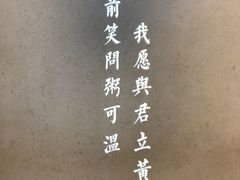 我愿與君立黃
前笑問粥可溫